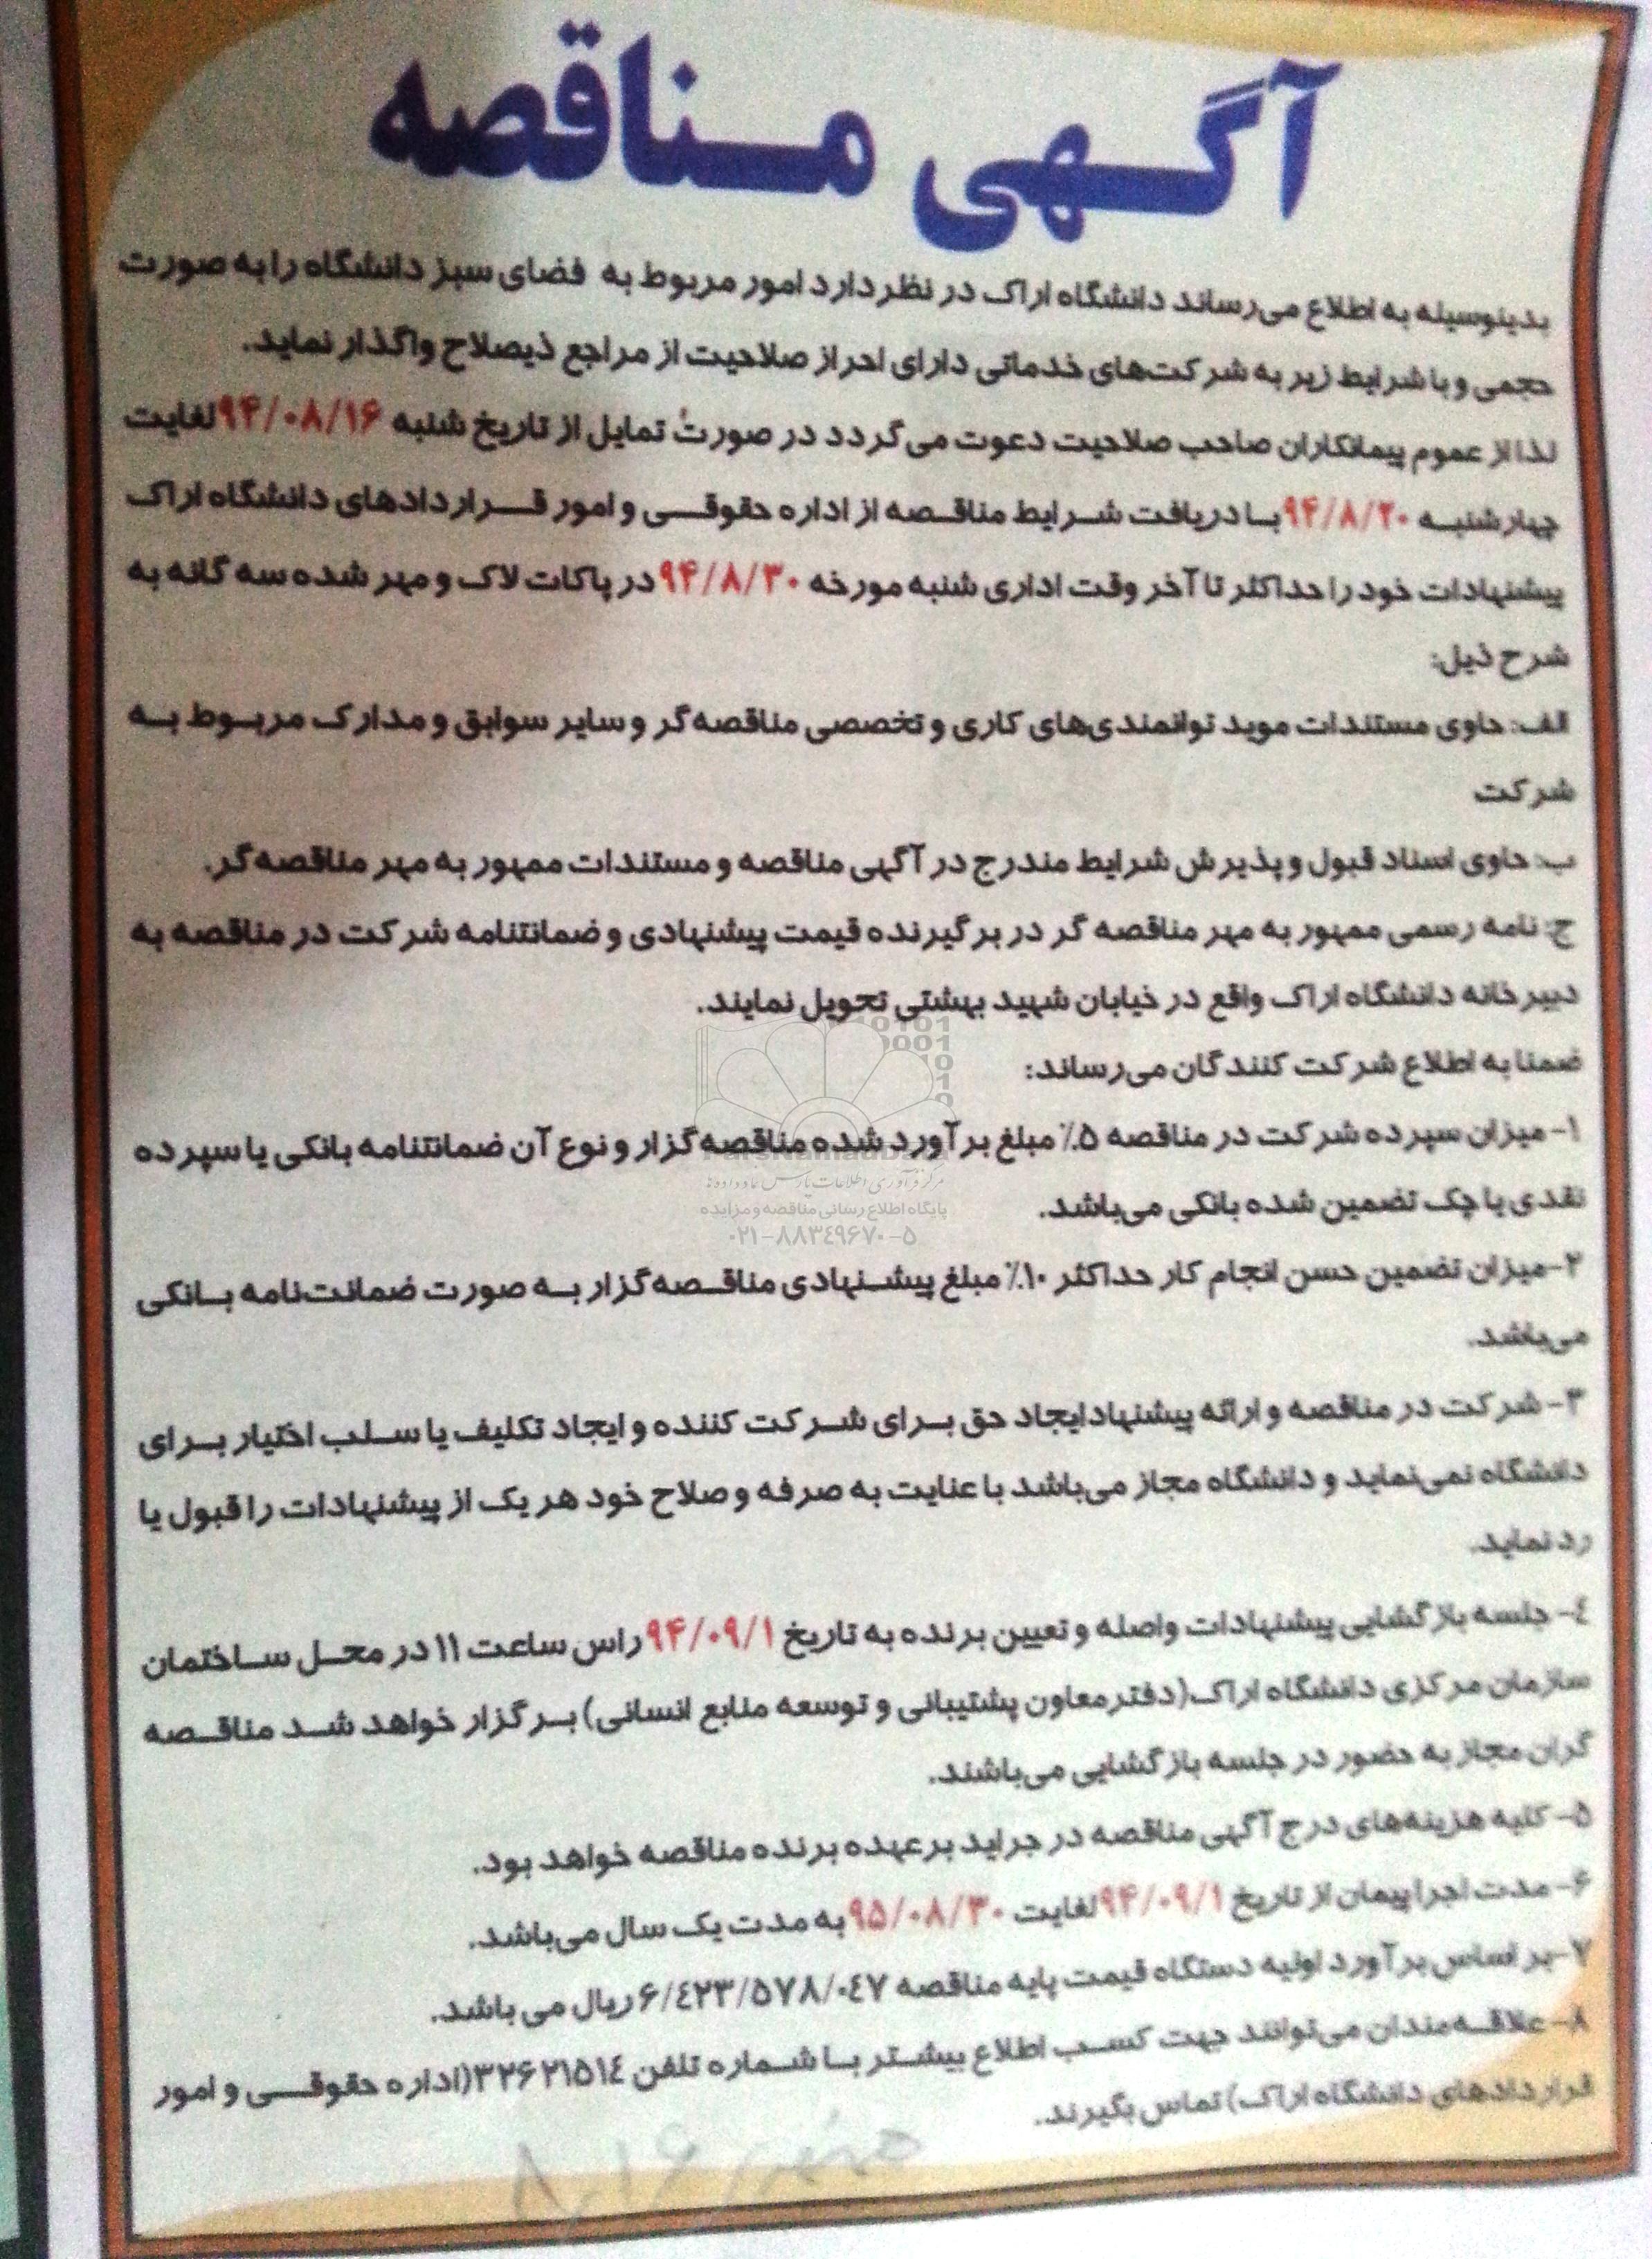 آگهی مناقصه
بدینوسیله به اطلاع می‌رساند دانشگاه اراک در نظر دارد امور مربوط به فضای سبز دانشگاه را به صورت
حجمی و با شرایط زیر به شرکت‌های خدماتی دارای احراز صلاحیت از مراجع ذیصلاح واگذار نماید.
لذا از عموم پیمانکاران صاحب صلاحیت دعوت می‌گردد در صورت تمایل از تاریخ شنبه ۹۴/۰۸/۱۶ لغایت
چهارشنبه ۹۴/۸/۲۰ با دریافت شرایط مناقصه از اداره حقوقی و امور قراردادهای دانشگاه اراک
پیشنهادات خود را حداکثر تا آخر وقت اداری شنبه مورخه ۹۴/۸/۳۰ در پاکات لاک و مهر شده سه گانه به
شرح ذیل:
الف: حاوی مستندات موید توانمندی‌های کاری و تخصصی مناقصه‌گر و سایر سوابق و مدارک مربوط به
شرکت
ب: حاوی اسناد قبول و پذیرش شرایط مندرج در آگهی مناقصه و مستندات ممهور به مهر مناقصه‌گر.
ج: نامه رسمی ممهور به مهر مناقصه گر در برگیرنده قیمت پیشنهادی و ضمانتنامه شرکت در مناقصه به
دبیرخانه دانشگاه اراک واقع در خیابان شهید بهشتی تحویل نمایند.
ضمنا به اطلاع شرکت کنندگان می‌رساند:
۱- میزان سپرده شرکت در مناقصه ۵٪ مبلغ برآورد شده مناقصه‌گزار و نوع آن ضمانتنامه بانکی یا سپرده
نقدی یا چک تضمین شده بانکی می‌باشد.
مرکز فرآوری اطلاعات پارس نماد داده‌ها
پایگاه اطلاع رسانی مناقصه و مزایده
۰۲۱-۸۸۳۴۹۶۷۰-۵
۲- میزان تضمین حسن انجام کار حداکثر ۱۰٪ مبلغ پیشنهادی مناقصه‌گزار به صورت ضمانت‌نامه بانکی
می‌باشد.
۳- شرکت در مناقصه و ارائه پیشنهاد ایجاد حق برای شرکت کننده و ایجاد تکلیف یا سلب اختیار برای
دانشگاه نمی‌نماید و دانشگاه مجاز می‌باشد با عنایت به صرفه و صلاح خود هر یک از پیشنهادات را قبول یا
رد نماید.
٤- جلسه بازگشایی پیشنهادات واصله و تعیین برنده به تاریخ ۹۴/۰۹/۱ راس ساعت ۱۱ در محل ساختمان
سازمان مرکزی دانشگاه اراک(دفتر معاون پشتیبانی و توسعه منابع انسانی) برگزار خواهد شد مناقصه
گران مجاز به حضور در جلسه بازگشایی می‌باشند.
۵- کلیه هزینه‌های درج آگهی مناقصه در جراید بر عهده برنده مناقصه خواهد بود.
۶- مدت اجرا پیمان از تاریخ ۹۴/۰۹/۱ لغایت ۹۵/۰۸/۳۰ به مدت یک سال می‌باشد.
۷- بر اساس برآورد اولیه دستگاه قیمت پایه مناقصه ۶/٤۲۳/۵۷۸/۰٤۷ ریال می باشد.
۸- علاقه‌مندان می‌توانند جهت کسب اطلاع بیشتر با شماره تلفن ۳۲۶۲۱۵۱٤(اداره حقوقی و امور
قراردادهای دانشگاه اراک) تماس بگیرند.